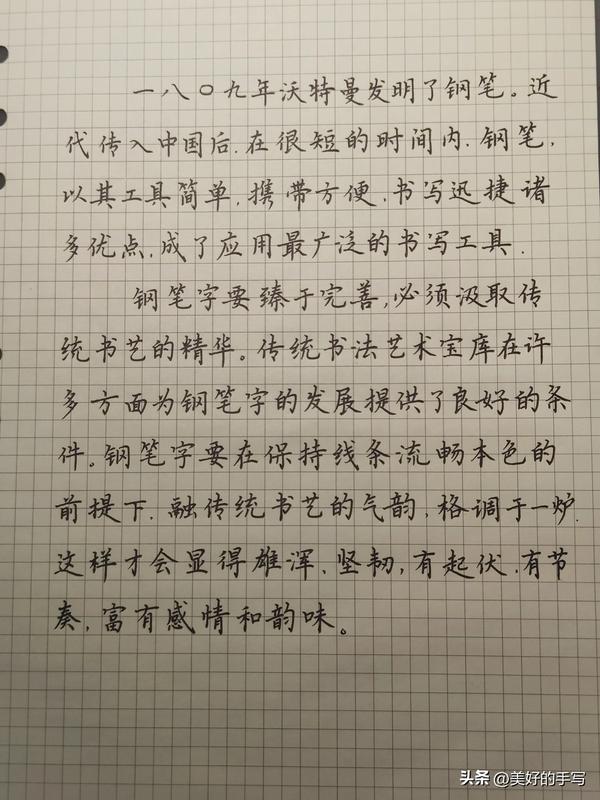 一八〇九年沃特曼发明了钢笔。近
代传入中国后.在很短的时间内.钢笔,
以其工具简单,携带方便,书写迅捷诸
多优点,成了应用最广泛的书写工具.
钢笔字要臻于完善,必须汲取传
统书艺的精华。传统书法艺术宝库在许
多方面为钢笔字的发展提供了良好的条
件。钢笔字要在保持线条流畅本色的
前提下.融传统书艺的气韵,格调于一炉.
这样才会显得雄浑、坚韧,有起伏.有节
奏,富有感情和韵味。
头条 @美好的手写